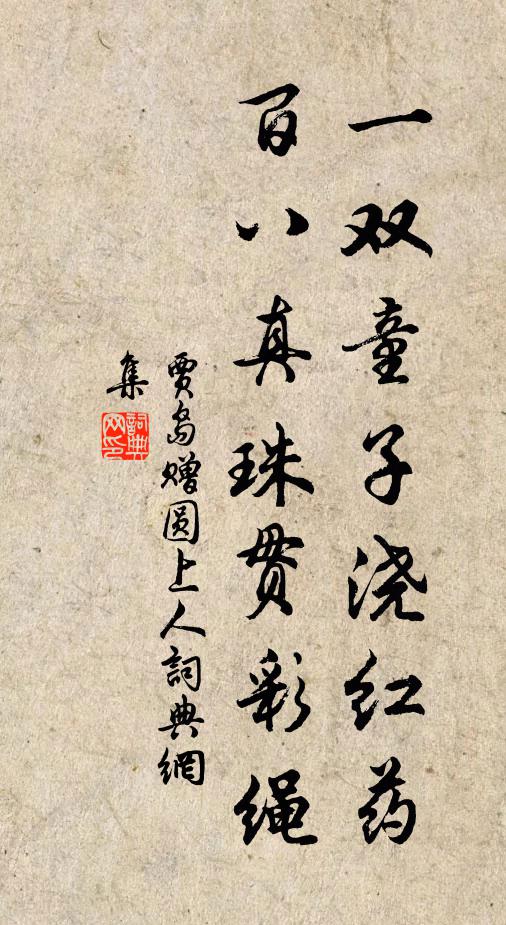 一双童子浇红药
百八真珠贯彩绳
贾岛赠圆上人詞典網
集
詞典網印